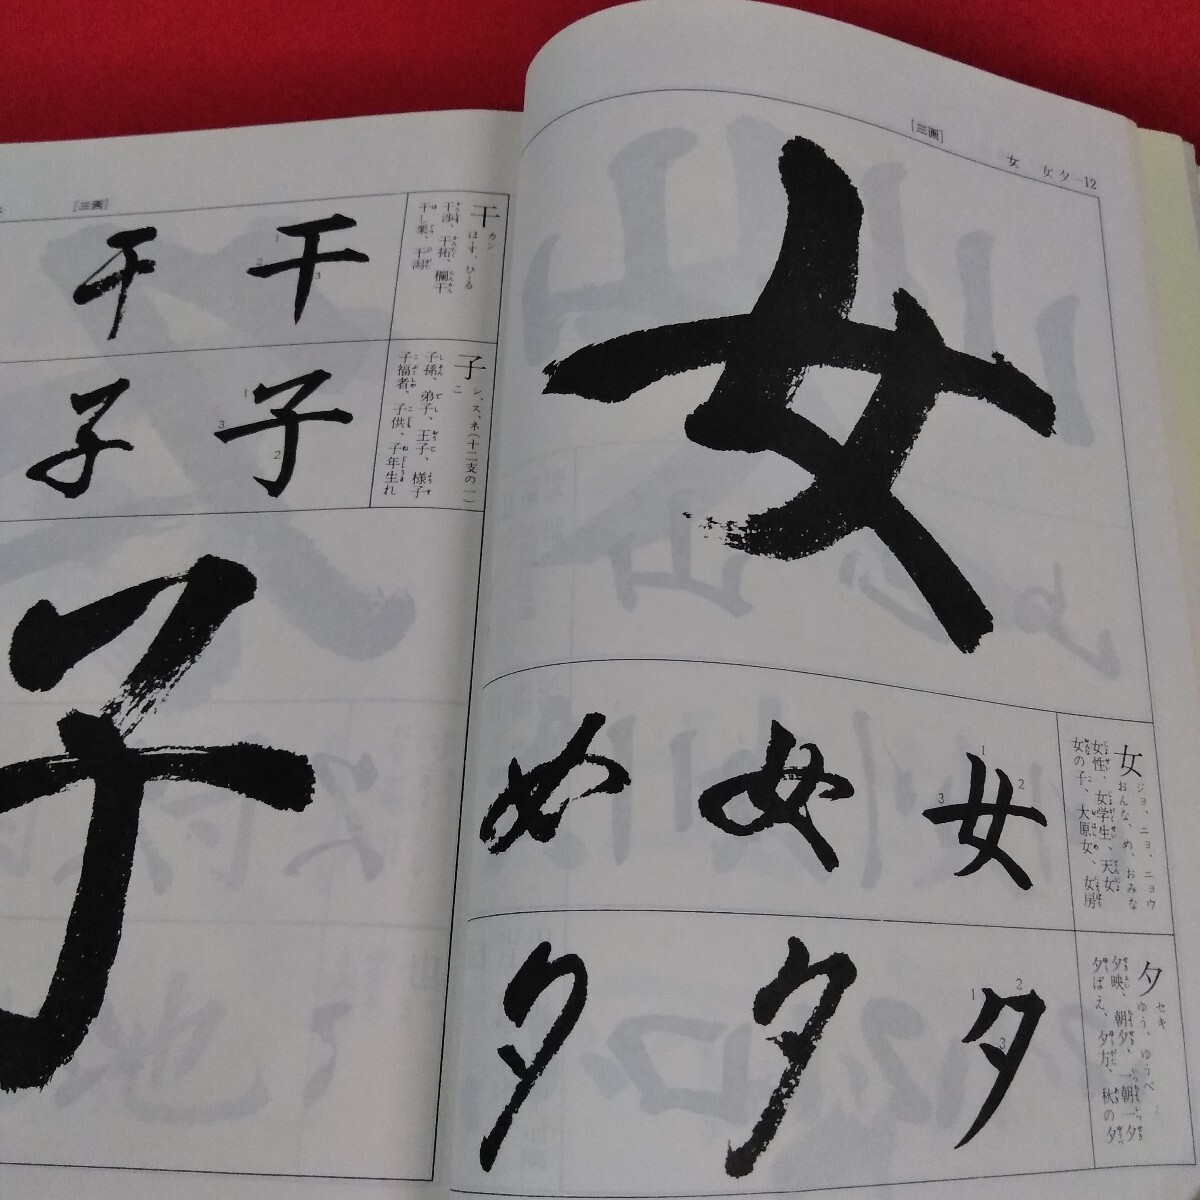 [三画]
女 女夕—12
女
女 ジョ、ニョ、ニョウ
おんな、め、おみな
女性、女学生、天女
女の子、大原女、女房
女 女 女
1 2 3
夕 セキ
ゆう、ゆうべ
夕映、朝夕、一朝一夕
夕ばえ、夕方、秋の夕
夕 夕 夕
1 2 3
[三画]
干 カン
ほす、ひる
干渉、干拓、欄干
干し菓、干潟
干 干
1 2 3
子 シ、ス、ネ(十二支の一)
こ
子孫、弟子、王子、様子
子福者、子供、子年生れ
子 子
1 2 3
子